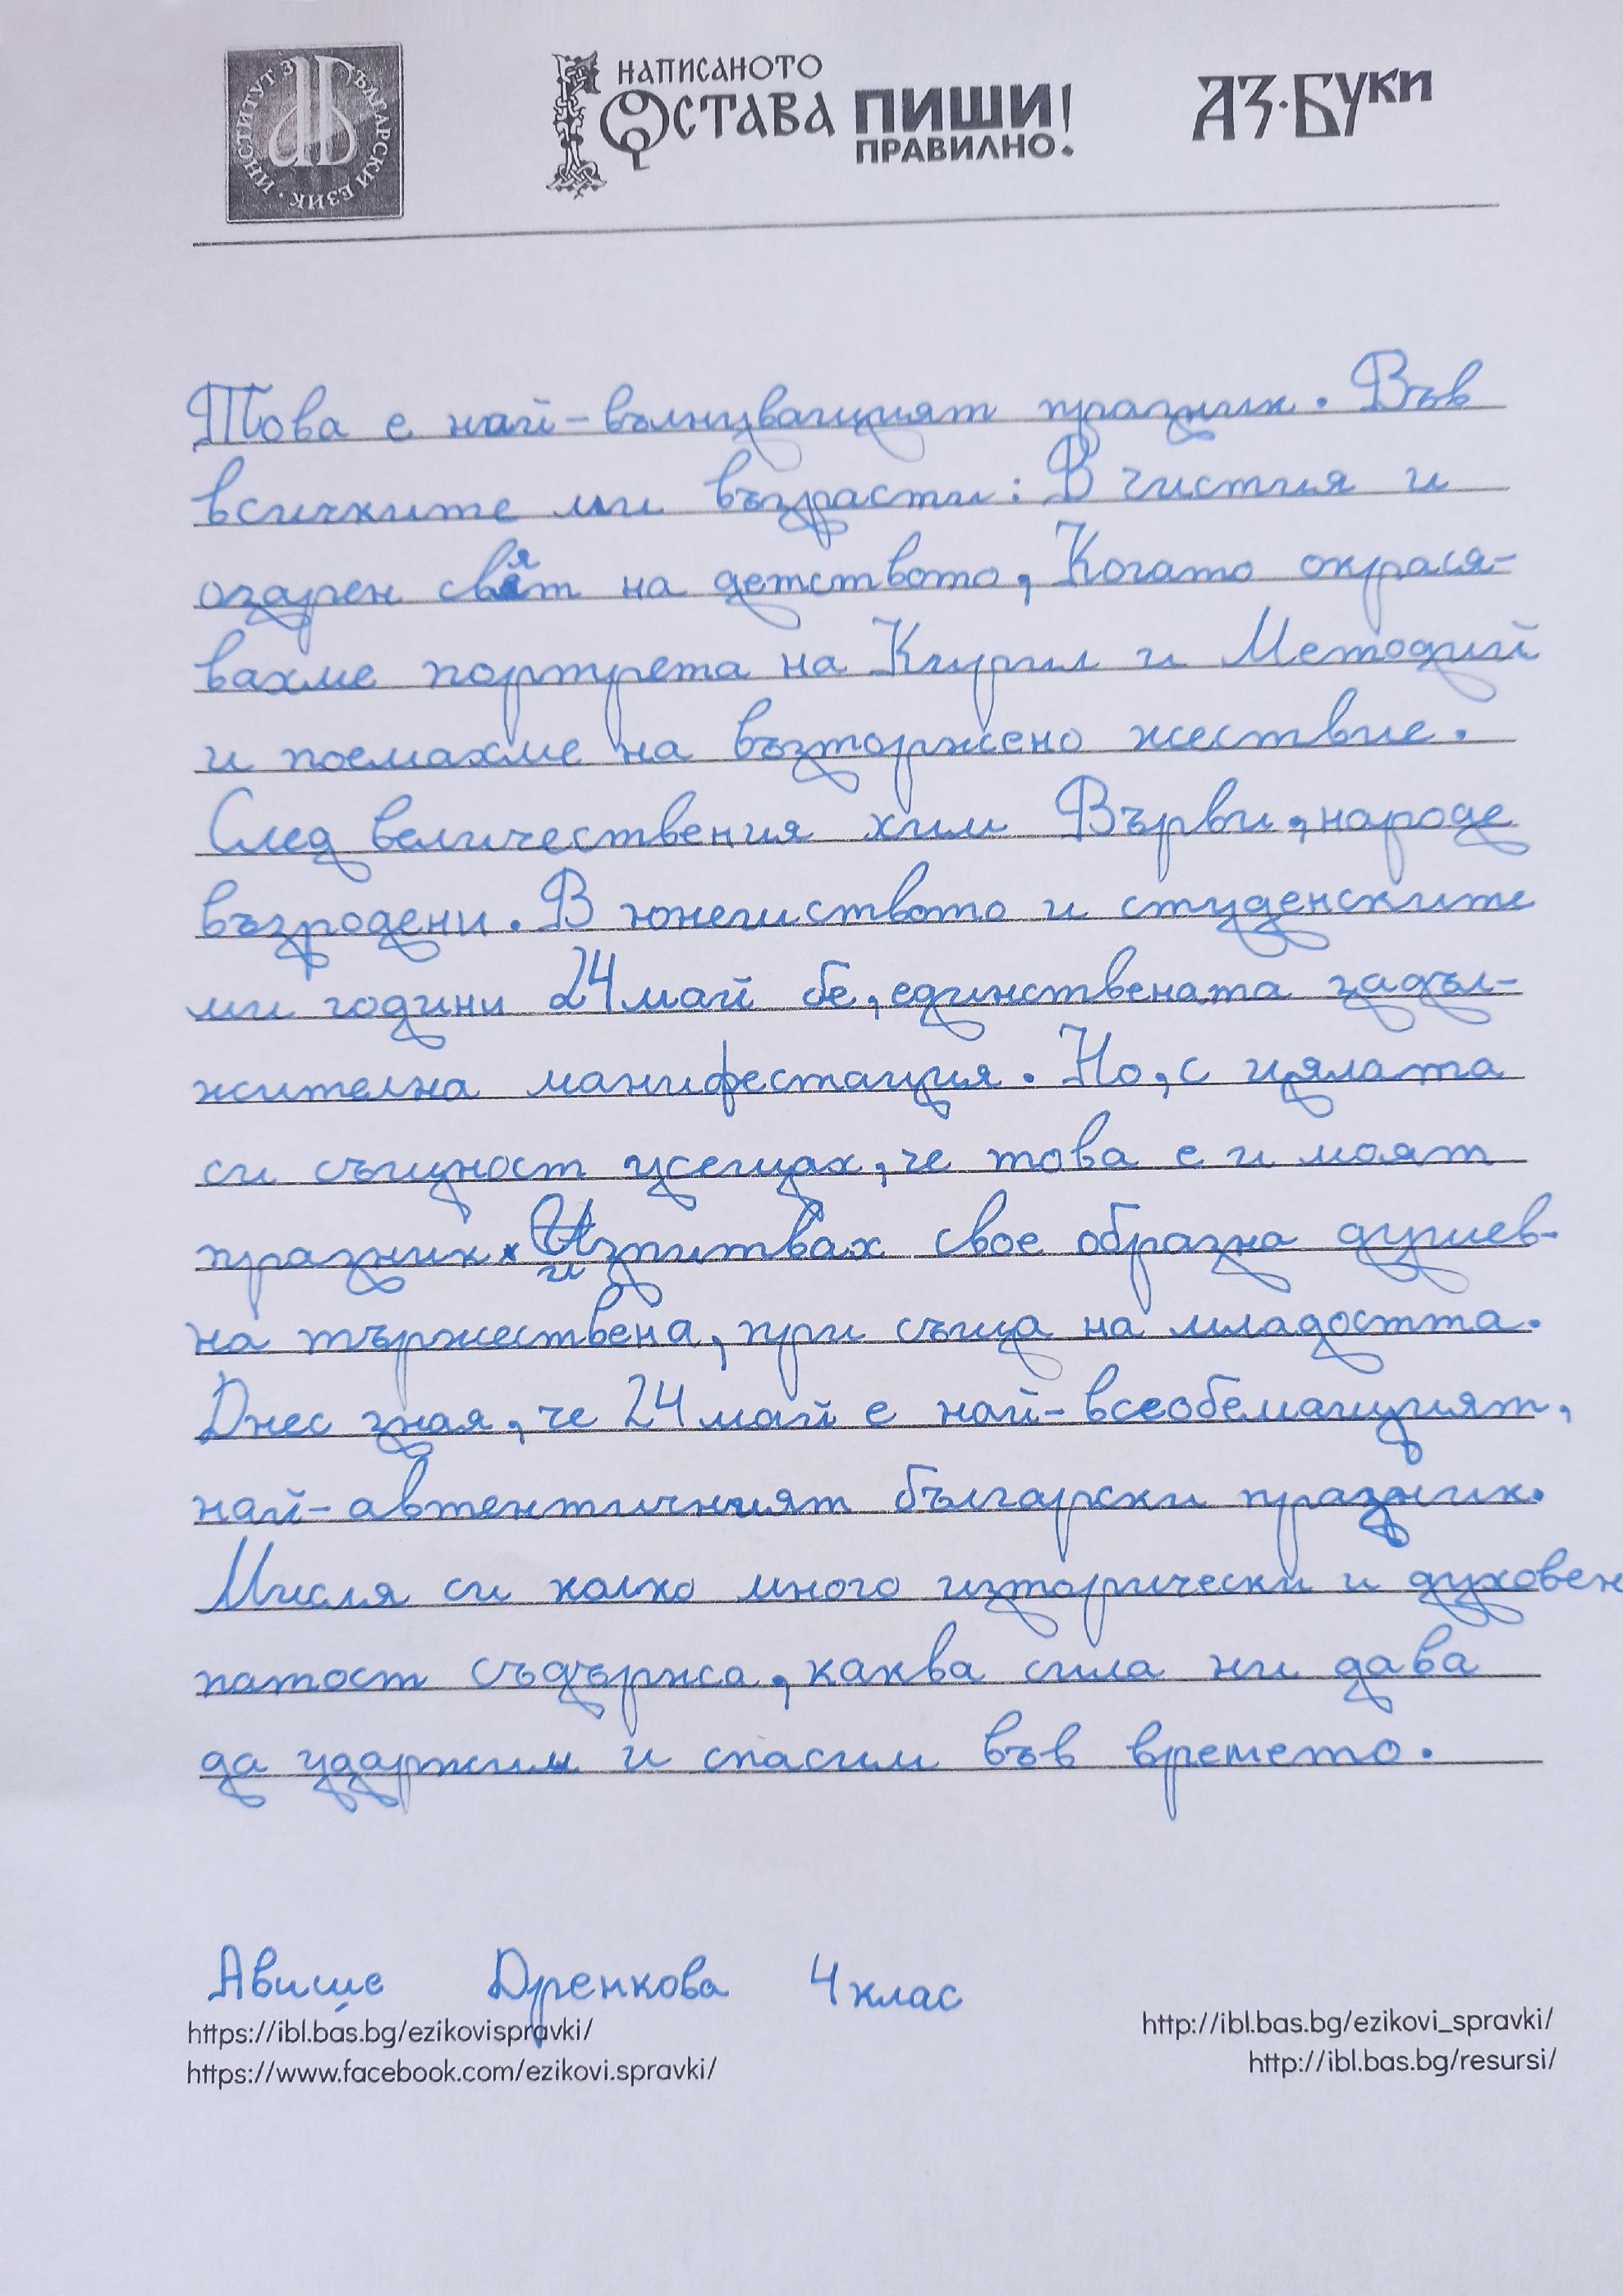 ИНСТИТУТ ЗА БЪЛГАРСКИ ЕЗИК
НАПИСАНОТО
ОСТАВА ПИШИ!
ПРАВИЛНО.
АЗ·БУКИ
Това е най-вълнуващият празник. Във
всичките ми възрасти: В чистия и
озарен свят на детството, Когато окрася-
вахме портрета на Кирил и Методий
и поемахме на възторжено жествие.
След величествения хим Върви, народе
възродени. В юнешството и студенските
ми години 24 май бе, единствената задъл-
жителна манифестация. Но, с цялата
си същност усещах, че това е и моят
празник изпитвах свое образна душев-
на тържествена, при съща на младостта.
Днес зная, че 24 май е най-всеобемащият,
най-автентичният български празник.
Мисля си колко много изторически и духовен
патост съдържа, каква сила ни дава
да удържим и спасим във времето.
Авише Дренкова 4 клас
https://ibl.bas.bg/ezikovispravki/
https://www.facebook.com/ezikovi.spravki/
http://ibl.bas.bg/ezikovi_spravki/
http://ibl.bas.bg/resursi/